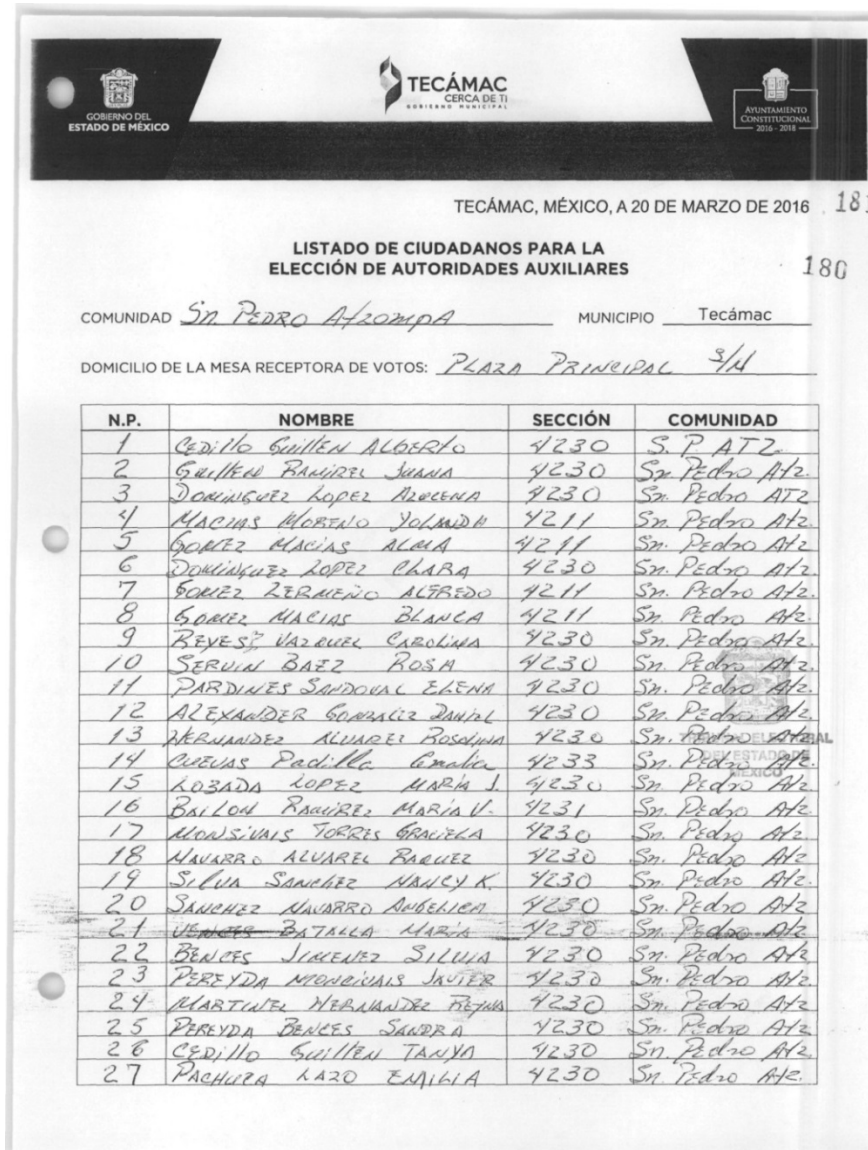 GOBIERNO DEL
ESTADO DE MÉXICO
TECÁMAC
CERCA DE TI
GOBIERNO MUNICIPAL
AYUNTAMIENTO
CONSTITUCIONAL
2016 - 2018
TECÁMAC, MÉXICO, A 20 DE MARZO DE 2016 181
LISTADO DE CIUDADANOS PARA LA
ELECCIÓN DE AUTORIDADES AUXILIARES
180
COMUNIDAD Sn. PEDRO Atzompa MUNICIPIO Tecámac
DOMICILIO DE LA MESA RECEPTORA DE VOTOS: PLAZA PRINCIPAL S/N
N.P. NOMBRE SECCIÓN COMUNIDAD
1 CEDillo GuillEN ALBERto 4230 S. P ATZ.
2 GuillEN RAMIREZ JUANA 4230 Sn. Pedro Atz.
3 DOMINGUEZ LOPEZ AZUCENA 4230 Sn. Pedro ATZ
4 MACIAS MORENO YOLANDA 4211 Sn. Pedro Atz.
5 GOMEZ MACIAS ALMA 4211 Sn. Pedro Atz.
6 DOMINGUEZ LOPEZ CLARA 4230 Sn. Pedro Atz.
7 GOMEZ ZERMEÑO ALFREDO 4211 Sn. Pedro Atz.
8 GOMEZ MACIAS BLANCA 4211 Sn. Pedro Atz.
9 REYES VAZQUEZ CAROLINA 4230 Sn. Pedro Atz.
10 SERVIN BAEZ ROSA 4230 Sn. Pedro Atz.
11 PARDINES SANDOVAL ELENA 4230 Sn. Pedro Atz.
12 ALEXANDER GONZALEZ DANIEL 4230 Sn. Pedro Atz.
13 HERNANDEZ ALVAREZ ROSALINA 4230 Sn. Pedro Atz.
14 CUEVAS Padilla Emalia 4233 Sn. Pedro Atz.
15 LOZADA LOPEZ MARÍA J. 4230 Sn. Pedro Atz.
16 BAILON RAMIREZ MARÍA V. 4231 Sn. Pedro Atz
17 MONSIVAIS TORRES GRACIELA 4230 Sn. Pedro Atz.
18 NAVARRO ALVAREZ RAQUEL 4230 Sn. Pedro Atz.
19 SILVA SANCHEZ NANCY K. 4230 Sn. Pedro Atz.
20 SANCHEZ NAVARRO ANGELICA 4230 Sn. Pedro Atz
21 VENCES BATALLA MARÍA 4230 Sn. Pedro Atz
22 BENCES JIMENEZ SILVIA 4230 Sn. Pedro Atz
23 PEREYDA MONCIVAIS JAVIER 4230 Sn. Pedro Atz
24 MARTINEZ HERNANDEZ REYNA 4230 Sn. Pedro Atz
25 PEREYDA BENCES SANDRA 4230 Sn. Pedro Atz
26 CEDillo GuillEN TANYA 4230 Sn. Pedro Atz.
27 PACHUCA LAZO EMILIA 4230 Sn. Pedro Atz.
DEL ESTADO DE
MÉXICO